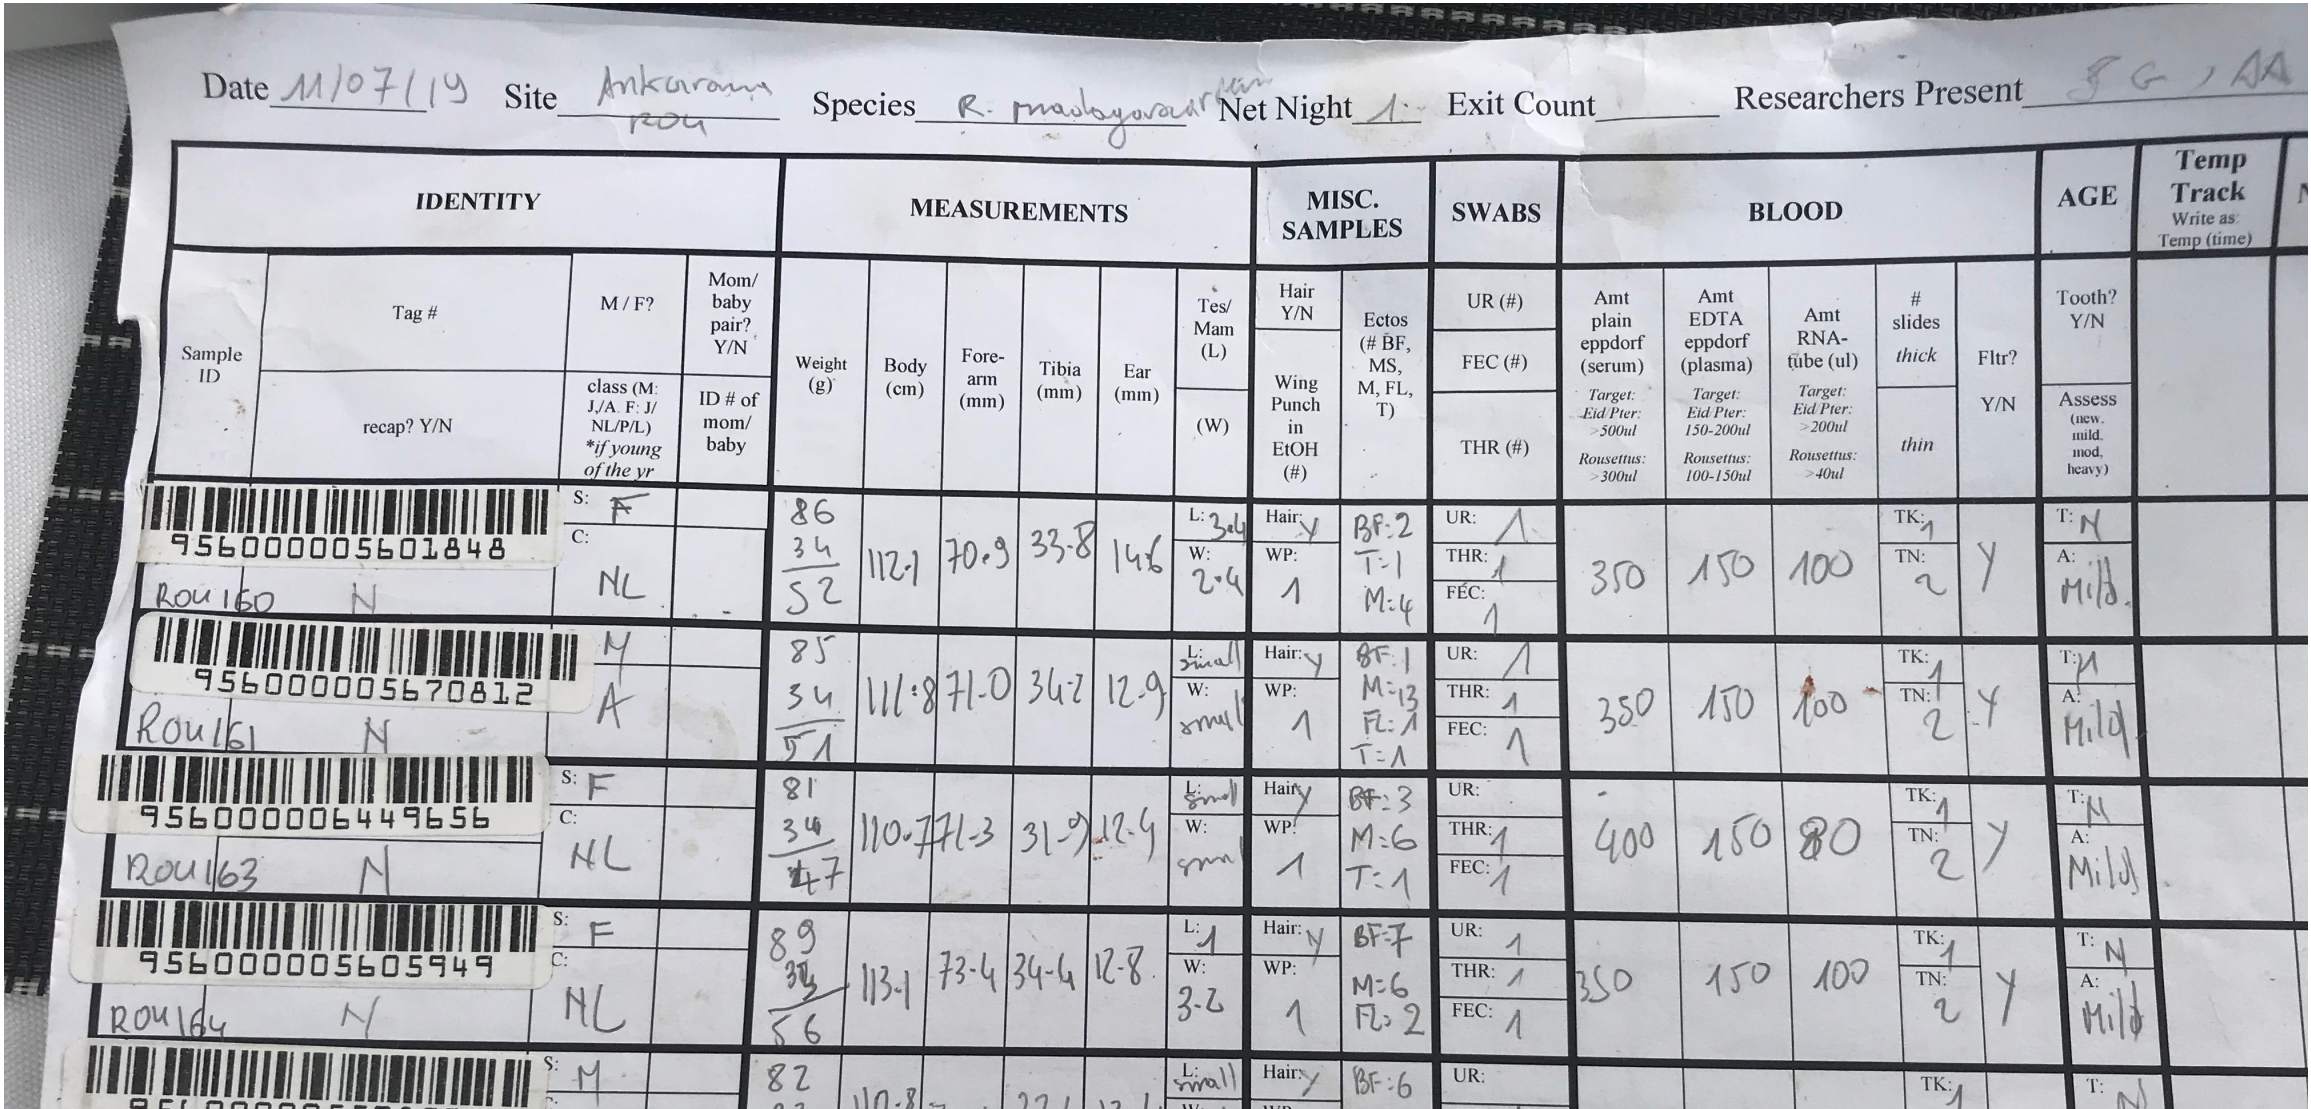 Date 11/07/19 Site Ankarana ROU Species R. madagascariensis Net Night 1 Exit Count Researchers Present , AA
IDENTITY MEASUREMENTS MISC. SAMPLES SWABS BLOOD AGE Temp Track Write as: Temp (time)
Sample ID
Tag #
recap? Y/N
M / F?
class (M: J./A. F: J/ NL/P/L) *if young of the yr
Mom/ baby pair? Y/N
ID # of mom/ baby
Weight (g)
Body (cm)
Fore-arm (mm)
Tibia (mm)
Ear (mm)
Tes/ Mam (L)
(W)
Hair Y/N
Wing Punch in EtOH (#)
Ectos (# BF, MS, M, FL, T)
UR (#)
FEC (#)
THR (#)
Amt plain eppdorf (serum) Target: Eid/Pter: >500ul Rousettus: >300ul
Amt EDTA eppdorf (plasma) Target: Eid/Pter: 150-200ul Rousettus: 100-150ul
Amt RNA-tube (ul) Target: Eid/Pter: >200ul Rousettus: >40ul
# slides thick
thin
Fltr? Y/N
Tooth? Y/N
Assess (new, mild, mod, heavy)
956000005601848
ROU160 N
S: F
C: NL
86
34
52
112.1 70.9 33.8 14.6
L: 3.4
W: 2.4
Hair: Y
WP: 1
BF: 2
T=1
M=4
UR: 1
THR: 1
FEC: 1
350 150 100
TK: 1
TN: 2
Y
T: N
A: Mild.
956000005670812
ROU161 N
M
A
85
34
51
111.8 71.0 34.2 12.9
L: small
W: small
Hair: Y
WP: 1
BF: 1
M=13
FL=1
T=1
UR: 1
THR: 1
FEC: 1
350 150 100
TK: 1
TN: 2
Y
T: N
A: Mild
956000006449656
ROU163 N
S: F
C: NL
81
34
47
110.7 71.3 31.9 12.4
L: small
W: small
Hair: Y
WP: 1
BF: 3
M=6
T=1
UR:
THR: 1
FEC: 1
400 150 80
TK: 1
TN: 2
Y
T: N
A: Mild
956000005605949
ROU164 N
S: F
C: NL
89
56
113.1 73.4 34.4 12.8
L: 1
W: 3.2
Hair: Y
WP: 1
BF=7
M=6
FL= 2
UR: 1
THR: 1
FEC: 1
350 150 100
TK: 1
TN: 2
Y
T: N
A: Mild
S: M
82
L: small
Hair: Y
BF=6
UR:
TK: 1
T: N